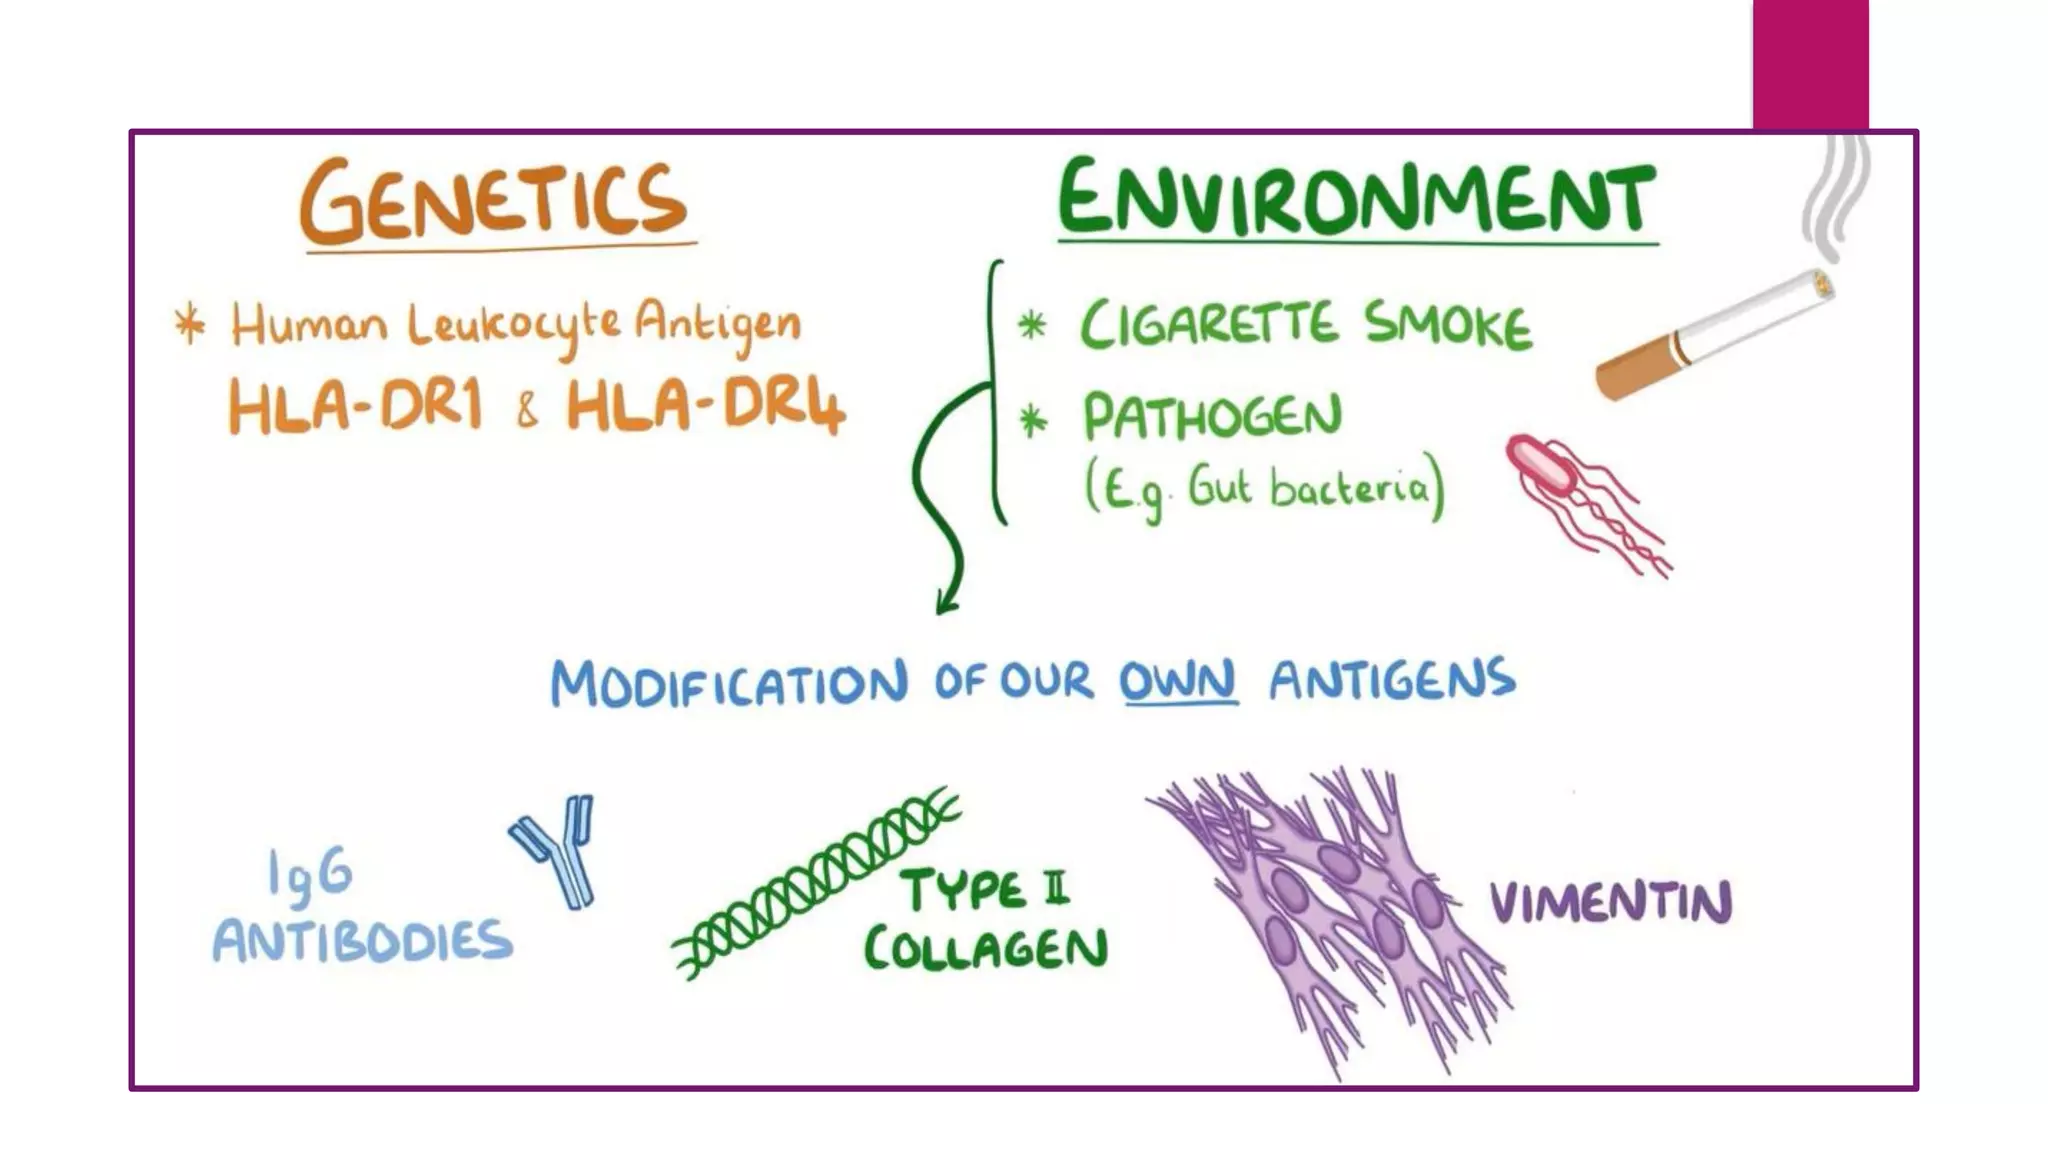 GENETICS
* Human Leukocyte Antigen
HLA-DR1 & HLA-DR4
ENVIRONMENT
* CIGARETTE SMOKE
* PATHOGEN
(E.g. Gut bacteria)
MODIFICATION OF OUR OWN ANTIGENS
IgG
ANTIBODIES
TYPE II
COLLAGEN
VIMENTIN